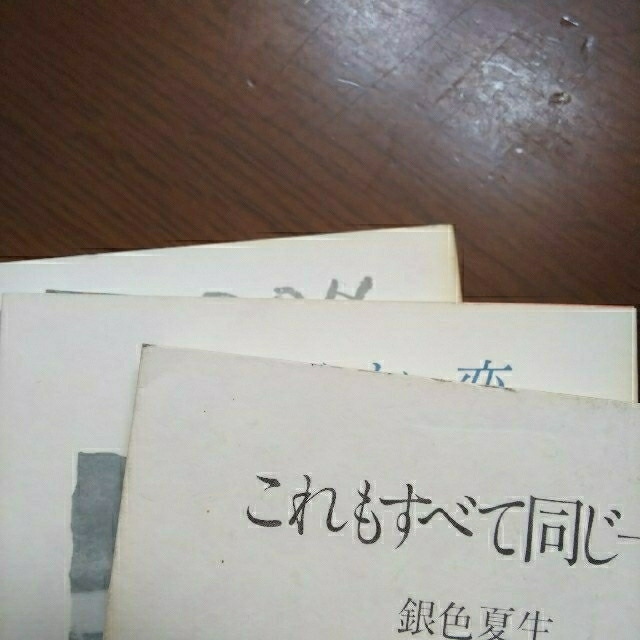 恋
これもすべて同じ一
銀色夏生